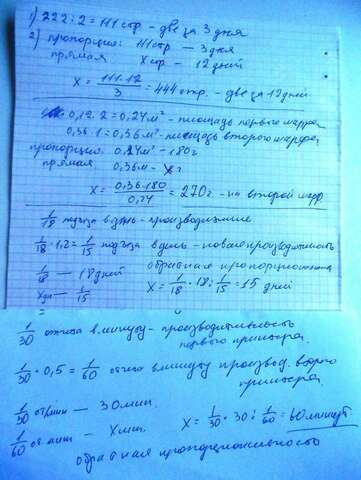 1) 222 : 2 = 111 стр - две за 3 дня
2) пропорция: 111 стр — 3 дня
прямая X стр - 12 дней
X = 111·12 / 3 = 444 стр. - две за 12 дней
0,12·2 = 0,24 м² - площадь первого шарфа
0,36·1 = 0,36 м² - площадь второго шарфа
пропорция: 0,24 м² - 180 г
прямая 0,36 м - X г
X = 0,36·180 / 0,24 = 270 г - на второй шарф
1/18 в день - производительность
1/18 · 1,2 = 1/15 в день - новая производительность
обратная пропорциональность
1/18 — 18 дней
X дн — 1/15
X = 1/18 · 18 : 1/15 = 15 дней
1/30 отчёта в минуту - производительность
первого принтера.
1/30 · 0,5 = 1/60 отчёта в минуту производ. второго
принтера.
1/30 от/мин — 30 мин.
1/60 от/мин — X мин.
X = 1/30 · 30 : 1/60 = 60 минут
обратная пропорциональность